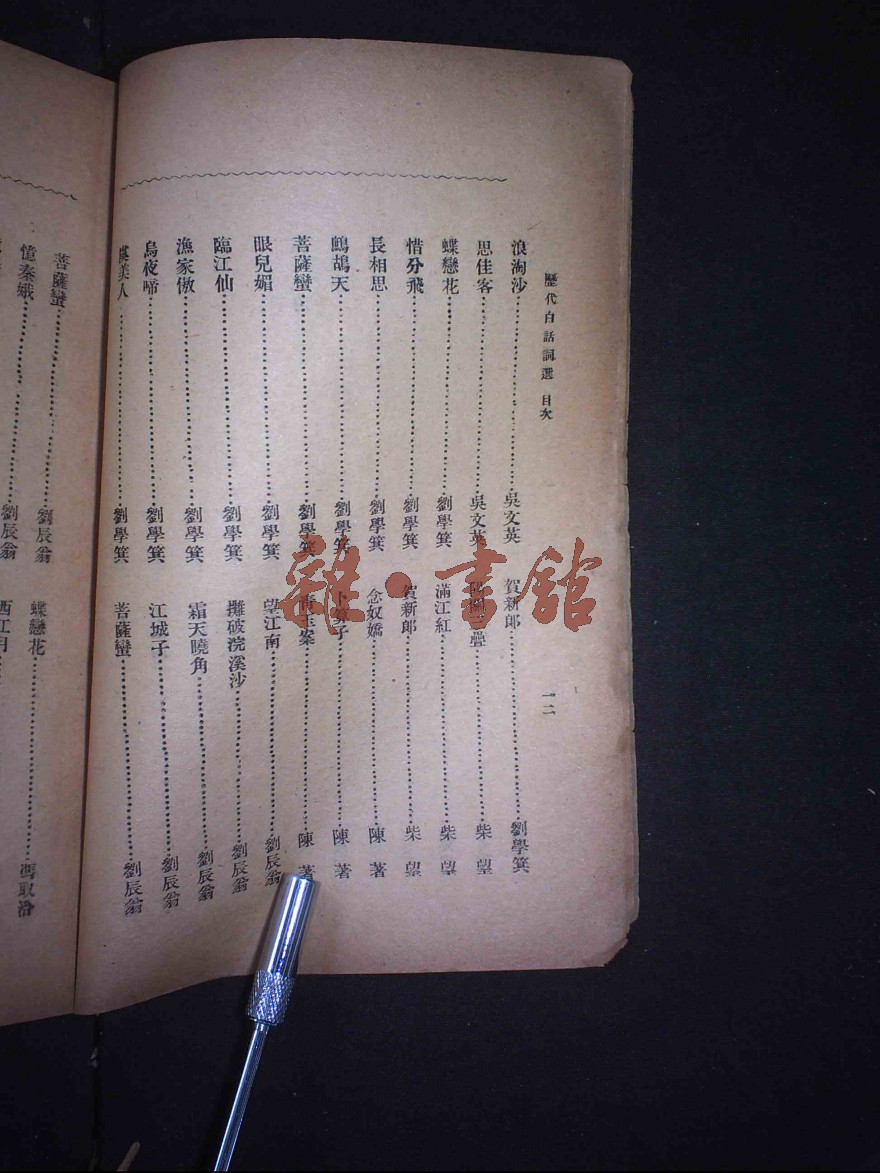 歷代白話詞選 目次
一二
浪淘沙 吳文英
思佳客 吳文英
蝶戀花 劉學箕
惜分飛 劉學箕
長相思 劉學箕
鷓鴣天 劉學箕
菩薩蠻 劉學箕
眼兒媚 劉學箕
臨江仙 劉學箕
漁家傲 劉學箕
烏夜啼 劉學箕
虞美人 劉學箕
賀新郎 劉學箕
陽關三疊 柴望
滿江紅 柴望
賀新郎 柴望
念奴嬌 陳著
卜算子 陳著
青玉案 陳著
望江南 劉辰翁
攤破浣溪沙 劉辰翁
霜天曉角 劉辰翁
江城子 劉辰翁
菩薩蠻 劉辰翁
菩薩蠻 劉辰翁
憶秦娥 劉辰翁
蝶戀花 馮取洽
西江月
雜·書館